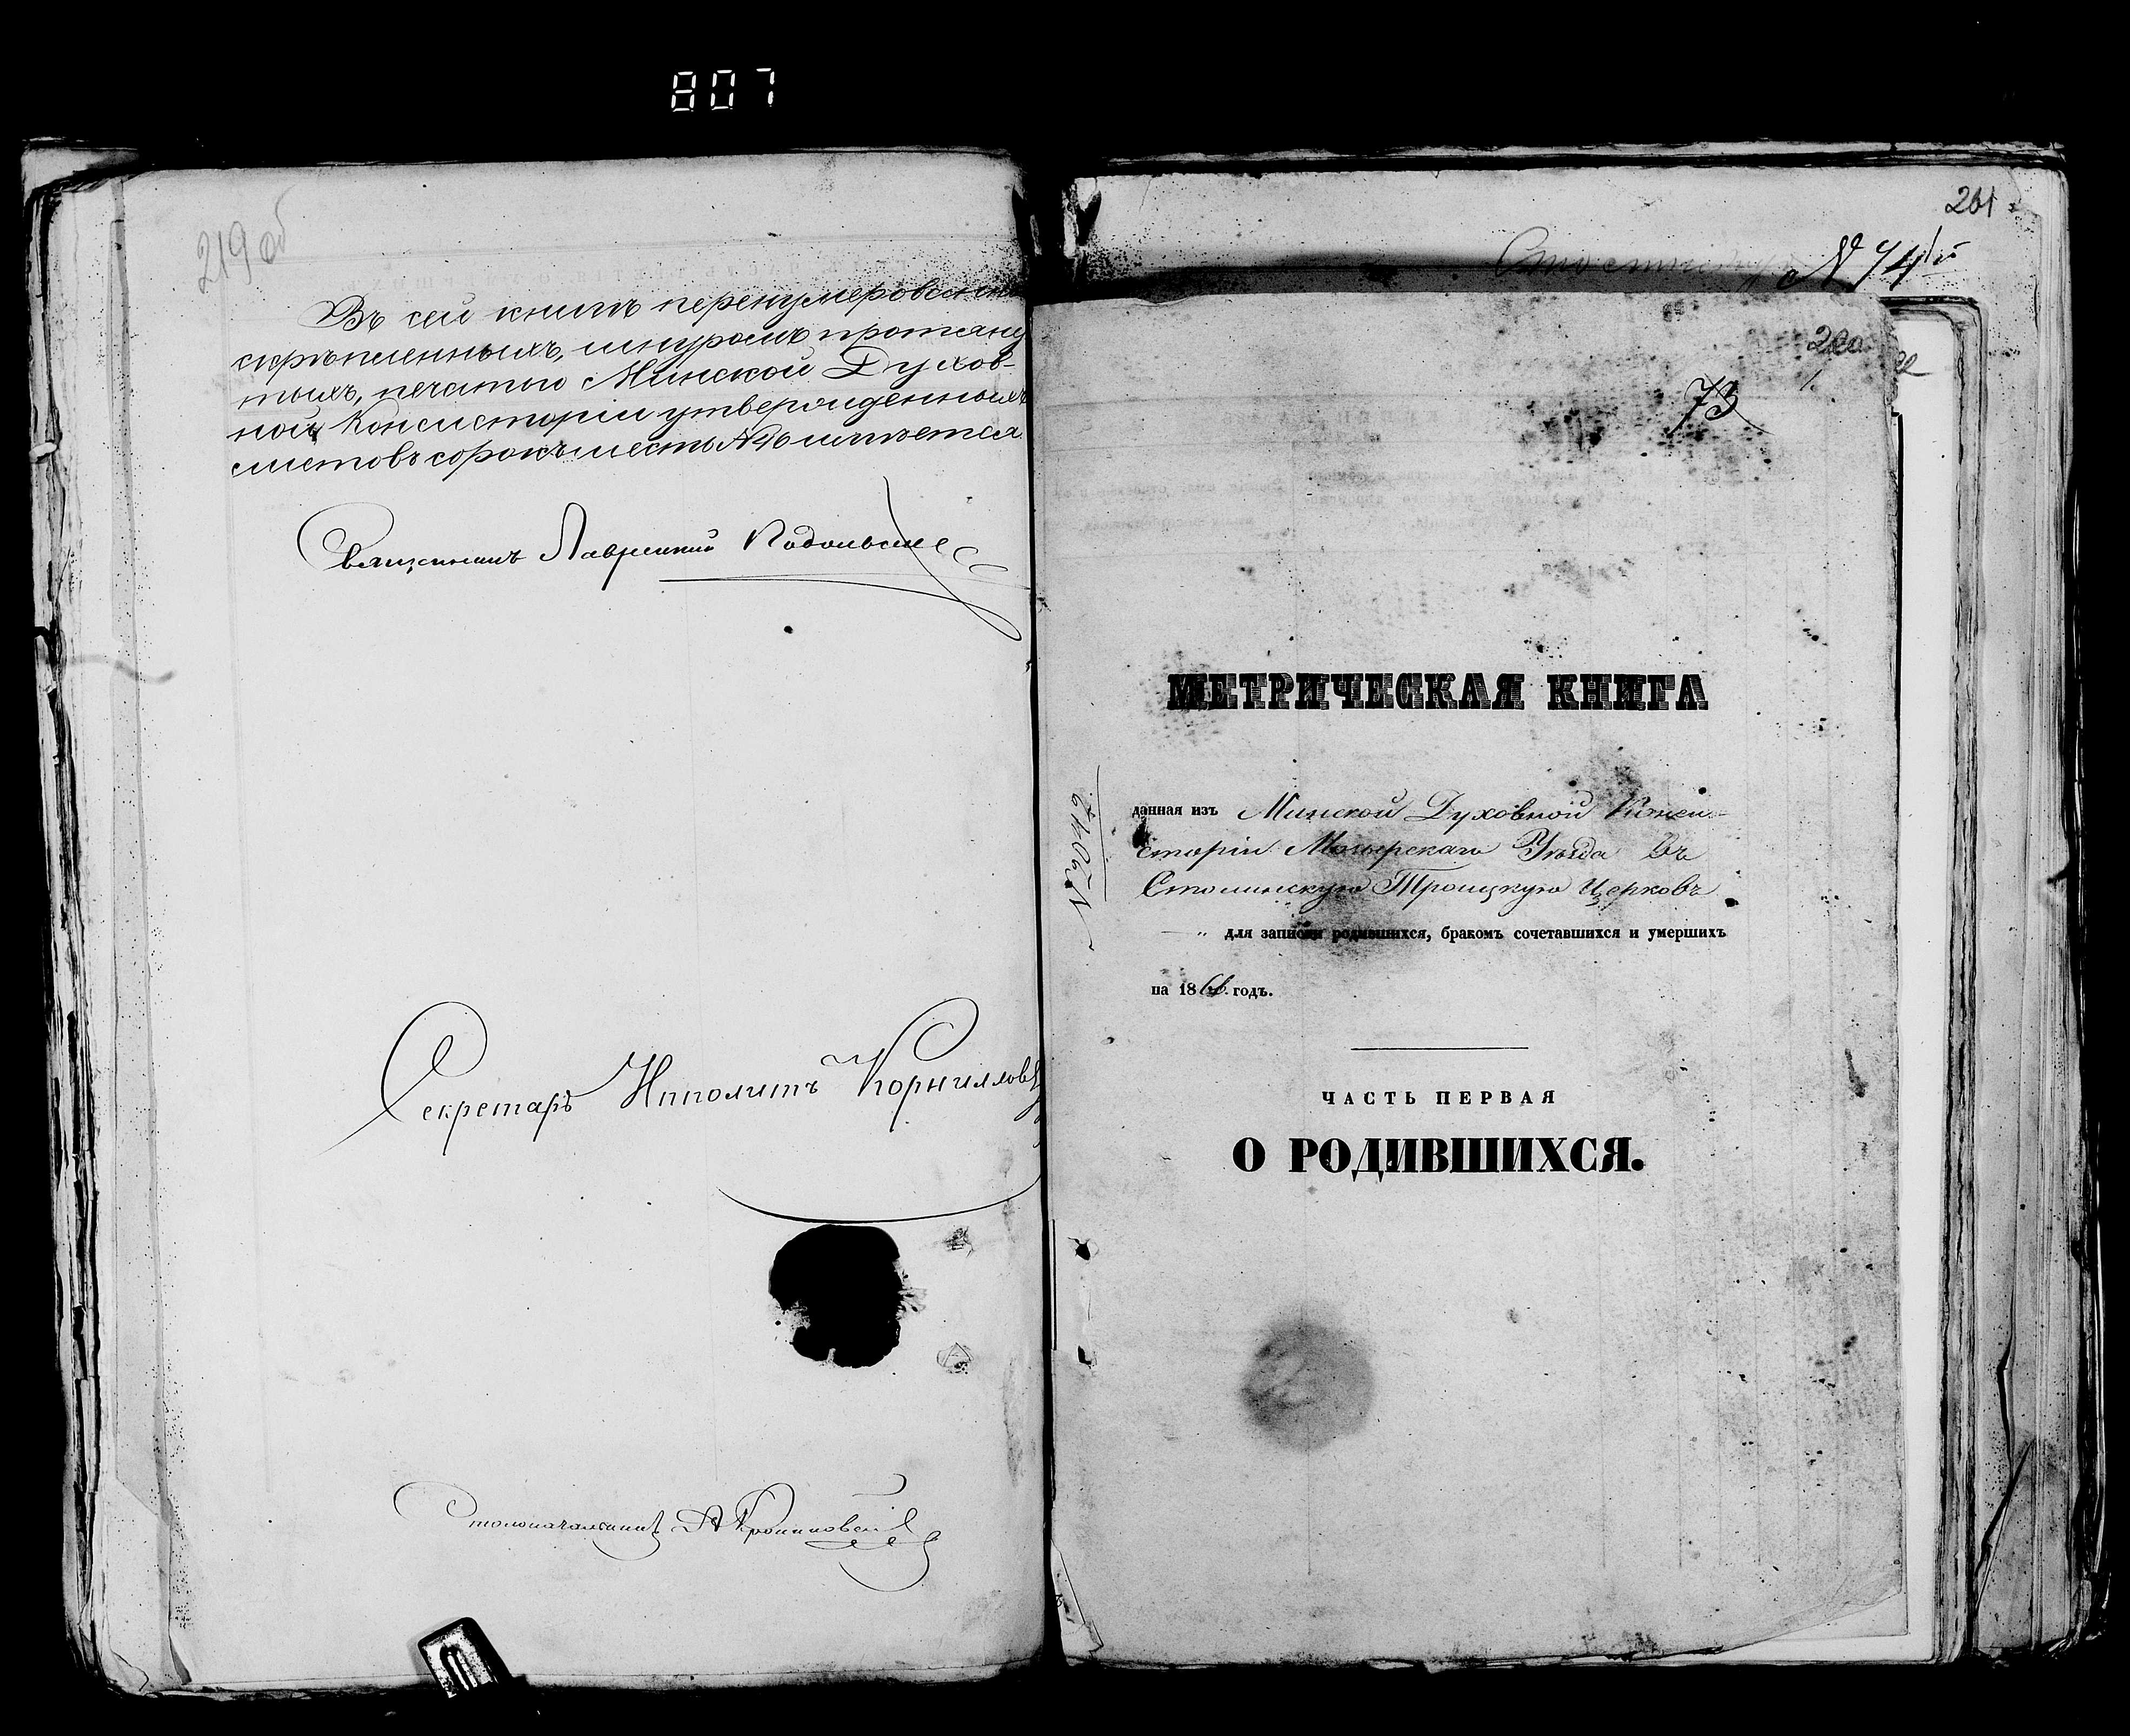 807
219 об
Въ сей книгѣ перенумерованн
скрѣпленныхъ, шнуромъ протяну
тыхъ, печатью Минской Духов-
ной Консисторіи утвержденныхъ
листовъ сорокъ шесть № 46 имѣется
Священникъ Лаврентій
Секретарь Ипполитъ Корниллов
Столоначальникъ
261
№ 74й
220
1.
73
МЕТРИЧЕСКАЯ КНИГА
данная изъ Минской Духовной Конси-
сторіи Мозырскаго Уѣзда Въ
Столинскую Троицкую Церковь
для записки родившихся, бракомъ сочетавшихся и умершихъ
на 18 годъ.
ЧАСТЬ ПЕРВАЯ
О РОДИВШИХСЯ.